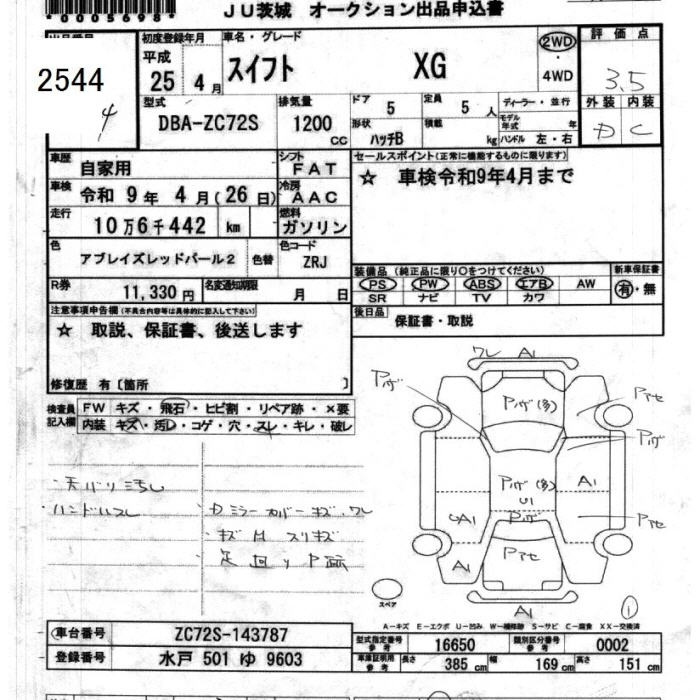 0005698
JU茨城 オークション出品申込書
2544
4
初度登録年月 車名・グレード 2WD 評価点
平成
25 4月 スイフト XG 4WD 3.5
型式 排気量 ドア 5 定員 5人 ディーラー・並行 外装 内装
DBA-ZC72S 1200cc 形状 ハッチB 積載 kg モデル年式 年 ハンドル 左・右 D C
車歴 自家用 シフト FAT セールスポイント(正常に機能するものに限ります)
車検 令和 9年 4月(26日) 冷房 AAC ☆ 車検令和9年4月まで
走行 10万6千442 km 燃料 ガソリン
色 アブレイズレッドパール2 色替 色コード ZRJ
装備品(純正品に限り○をつけてください) 新車保証書
PS PW ABS エアB AW 有・無
SR ナビ TV カワ
R券 11,330円 名変通知期限 月 日
後日品 保証書・取説
注意事項申告欄(不具合内容等は具体的に記入して下さい)
☆ 取説、保証書、後送します
修復歴 有〔箇所 〕
検査員記入欄 FW キズ・飛石・ヒビ割・リペア跡・×要
内装 キズ・汚レ・コゲ・穴・スレ・キレ・破レ
天バリ汚レ
ハンドルスレ
Dミラーカバーキズ、ワレ
キズ H スリキズ
足回りP
ワレ A1
Pハゲ
Pハゲ(多)
Pアセ
Pハゲ
Pハゲ(多)
U1
A1
Pハゲ
UA1
Pアセ
Pアセ
A1
A1
スペア
1
A-キズ E-エクボ U-凹み W-補修跡 S-サビ C-腐食 XX-交換済
車台番号 ZC72S-143787 型式指定番号 参考 16650 類別区分番号 参考 0002
登録番号 水戸 501 ゆ 9603 車庫証明用 参考 長さ 385cm 幅 169cm 高さ 151cm